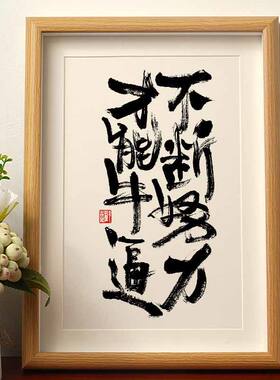 不断努力
才能牛逼